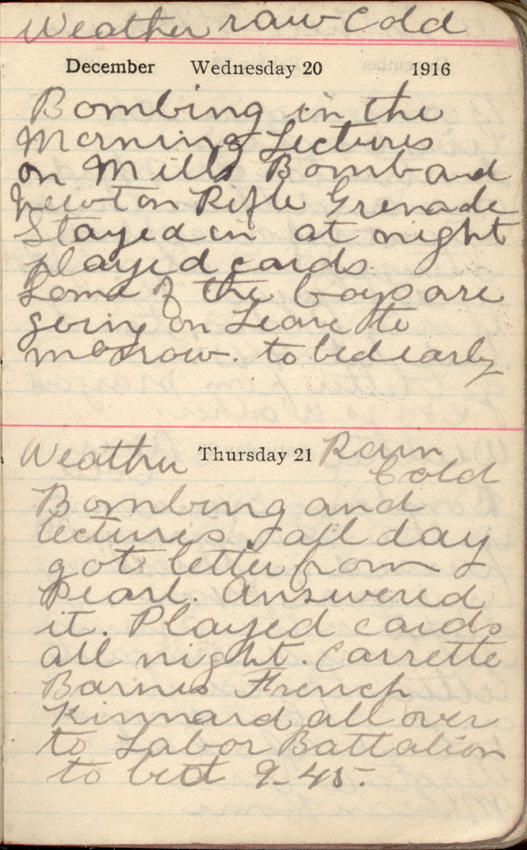 Weather raw Cold
December Wednesday 20 1916
Bombing in the
Morning Lectures
on Mills Bomb and
Newton Rifle Grenade
Stayed in at night
played cards
Some of the boys are
going on Leave to
morrow. to bed early
Weather Thursday 21 Rain
Cold
Bombing and
lectures all day
got letter from
Pearl. Answered
it. Played cards
all night. Carrette
Barnes French
Kinnard all over
to Labor Battalion
to bed 9-45.